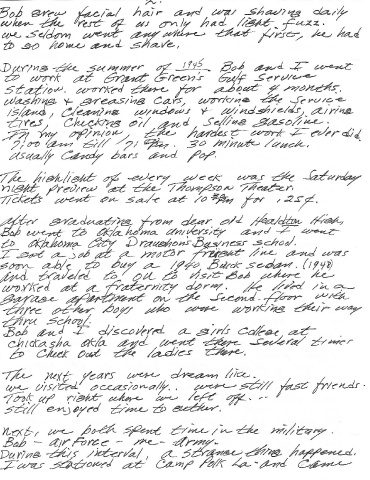 Bob grew facial hair and was shaving daily
when the rest of us only had light fuzz.
we seldom went anywhere that first, he had
to go home and shave.
During the summer of 1945 Bob and I went
to work at Grant Green's Gulf Service
Station. worked there for about 4 months.
washing & greasing cars, working the service
island, cleaning windows & windshields, airing
tires, checking oil and selling gasoline.
In my opinion, the hardest work I ever did.
7:00 am till 7:00 pm. 30 minute lunch.
usually candy bars and pop.
The highlight of every week was the Saturday
night preview at the Thompson Theater.
Tickets went on sale at 10 pm for .25¢.
after graduating from dear old Healdton High,
Bob went to Oklahoma University and I went
to Oklahoma City Draughons Business school.
I got a job at a motor freight line and was
soon able to buy a 1940 Buick sedan. (1948)
and traveled to O.U to visit Bob where he
worked at a fraternity dorm. He lived in a
garage apartment on the second floor with
three other boys who were working their way
thru school.
Bob and I discovered a girls college, at
chickasha okla and went there several times
to check out the ladies there.
The next years were dream like.
we visited occasionally.. were still fast friends.
Took up right where we left off...
still enjoyed time together.
Next, we both spent time in the military.
Bob - air Force - me - army.
During this interval, a strange thing happened.
I was stationed at Camp Polk La. and came